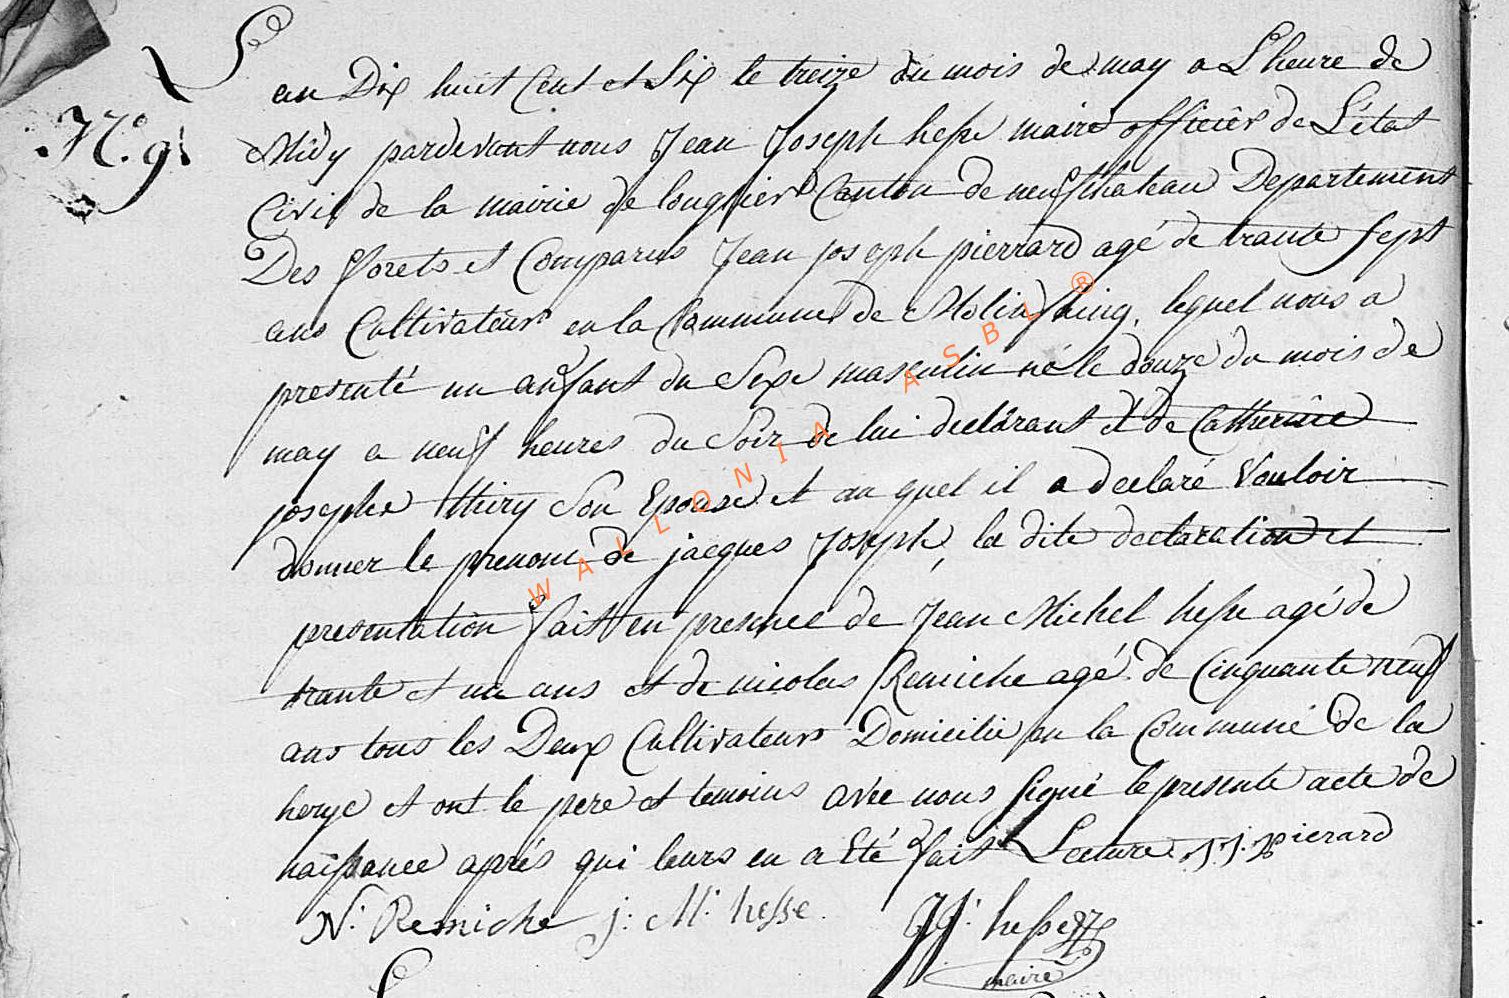 L'an Dix huit Cent et Six le treize du mois de may a L'heure de
N.° 9
Midy pardevant nous Jean Joseph hesse maire officier de L'état
Civil de la mairie de longlier Canton de neufchateau Departement
Des forets et Comparus Jean joseph pierrard agé de trante sept
ans Cultivateur en la Commune de Molinfaing, lequel nous a
presenté un anfant du Sexe masculin né le douze du mois de
may a neuf heures du Soir de lui declarant et de Catherine
josephe thiry Son Epouse et au quel il a declaré Vouloir
donner le prenom de jacques Joseph, la dite declaration et
presentation fait en presence de Jean Michel hesse agé de
trante et un ans et de nicolas Remiche agé de Cinquante neuf
ans tous les Deux Cultivateurs Domicilié en la Commune de la
herye et ont le pere et temoins avec nous signé le presente acte de
naissance aprés qui leurs en a Eté fait Lecture. J: J: pierard
N. Remiche j: M: hesse JJ: hesse
maire
WALLONIA ASBL ®